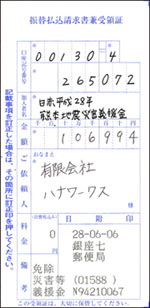 振替払込請求書兼受領証
口座記号番号
00130 4
265072
加入者名
日赤平成28年
熊本地震災害義援金
金額
106994
ご依頼人
おなまえ
有限会社
ハナワークス
料金
0
円
日附印
28-06-06
銀座七
郵便局
備考
免除
災害等 (01588)
義援金 N94210067
記載事項を訂正した場合は、その箇所に訂正印を押してください。
この受領証は、大切に保管してください。